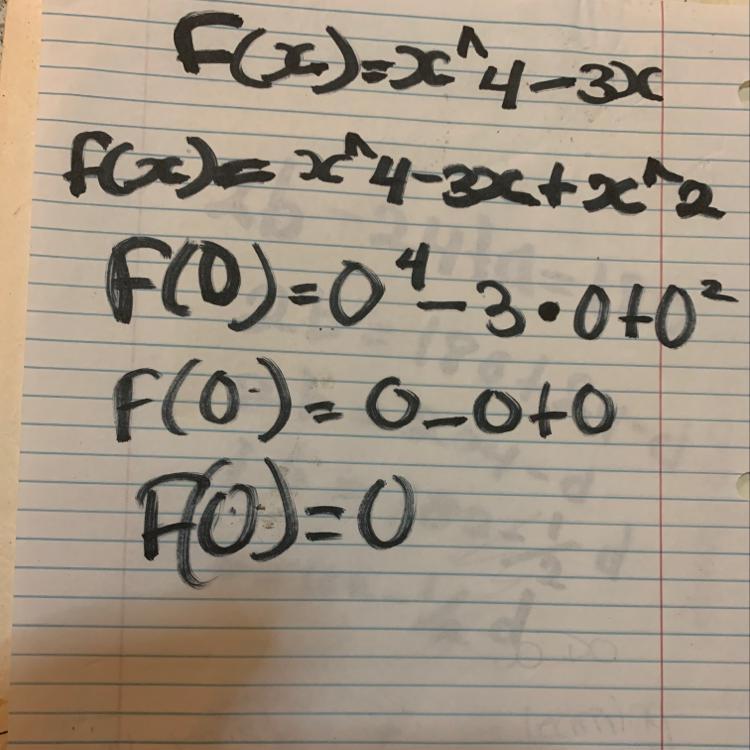 F(x)=x^4-3x
f(x)=x^4-3x+x^2
F(0)=0⁴-3•0+0²
F(0)=0-0+0
F(0)=0